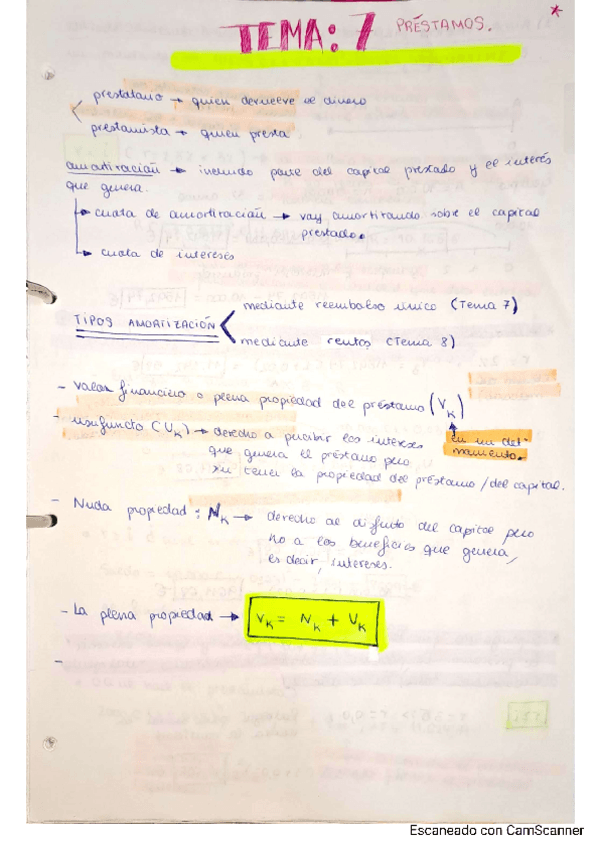 TEMA: 7 PRÉSTAMOS. *
prestatario → quien devuelve el dinero
prestamista → quien presta
amortización → incluido parte del capital prestado y el interés
que genera.
→ cuota de amortización → voy amortizando sobre el capital
prestado.
→ cuota de intereses
mediante reembolso único (Tema 7)
TIPOS AMORTIZACIÓN <
mediante rentas (Tema 8)
- Valor financiero o plena propiedad del préstamo (VK)
- usufructo (UK) → derecho a percibir los intereses en un det-
que genera el préstamo pero momento.
sin tener la propiedad del préstamo / del capital.
- Nuda propiedad: NK → derecho al disfrute del capital pero
no a los beneficios que genera,
es decir, intereses.
- La plena propiedad → VK = NK + UK
-
Escaneado con CamScanner